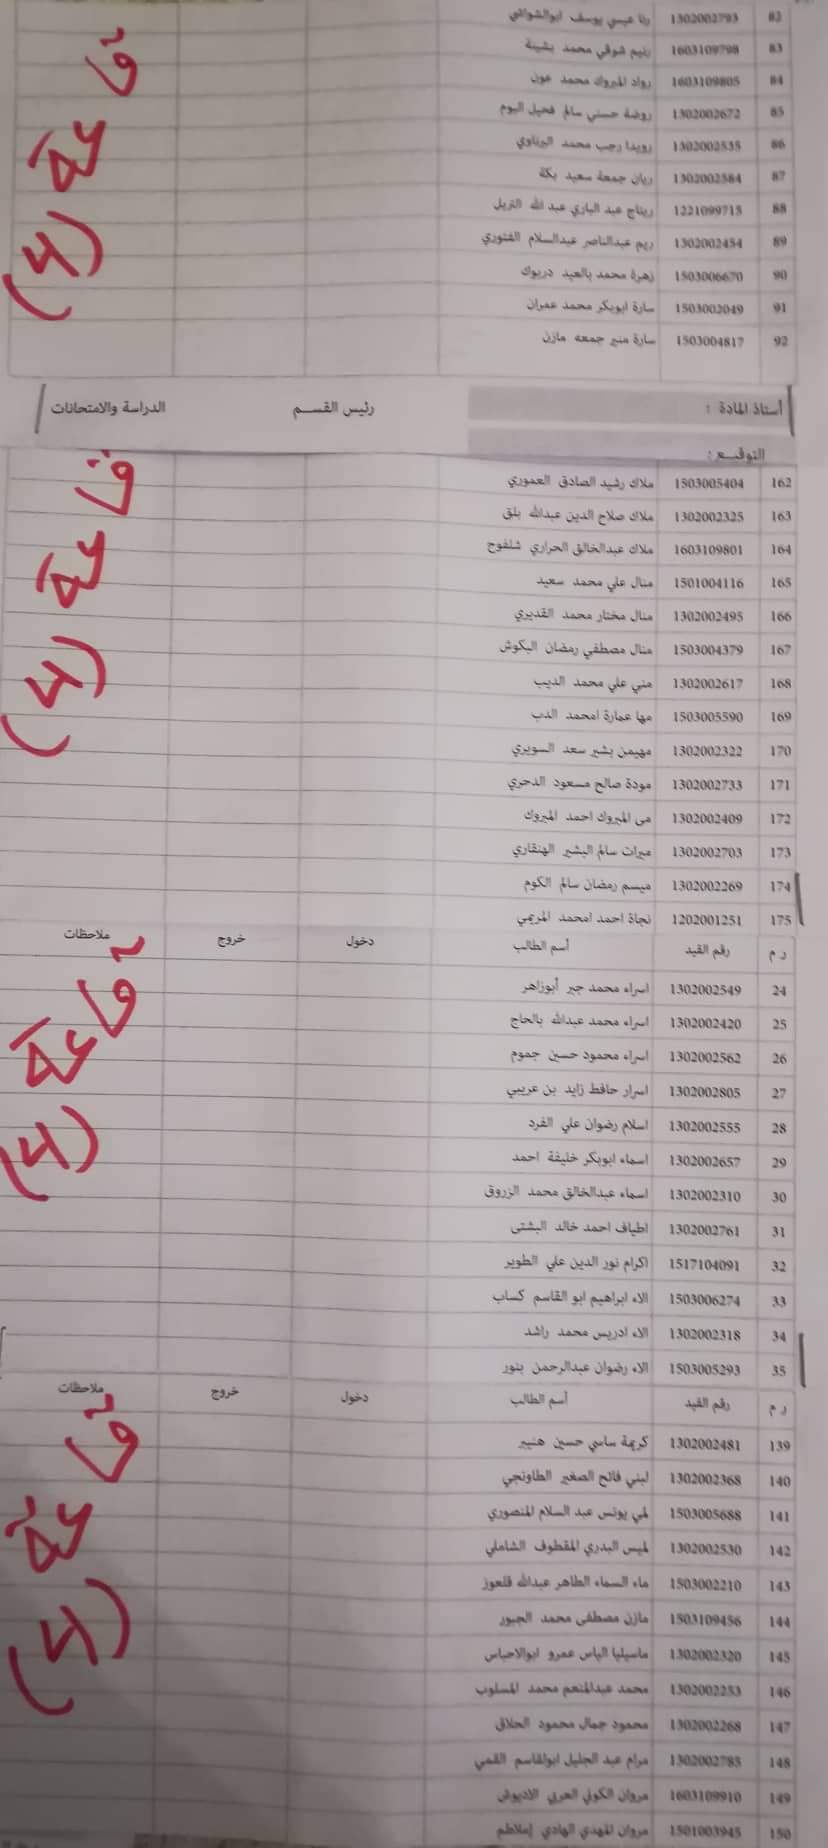 82 1302002793 رنا عيسي يوسف ابوالشواشي
83 1603109798 رنيم شوقي محمد بشينة
84 1603109805 رواد المبروك محمد عون
85 1302002672 روضة حسني سالم فحيل البوم
86 1302002535 رويدا رجب محمد البرناوي
87 1302002584 ريان جمعة سعيد بكة
88 1221099715 ريتاج عبد الباري عبد الله التريل
89 1302002454 ريم عبدالناصر عبدالسلام الفتوري
90 1503006670 زهرة محمد بالعيد دربوك
91 1503002049 سارة ابوبكر محمد عمران
92 1503004817 سارة منير جمعه مازن
قاعة (4)
أستاذ المادة : رئيس القسم الدراسة والامتحانات
التوقيع :
162 1503005404 ملاك رشيد الصادق العموري
163 1302002325 ملاك صلاح الدين عبدالله بلق
164 1603109801 ملاك عبدالخالق الحراري شلفوح
165 1501004116 منال علي محمد سعيد
166 1302002495 منال مختار محمد القديري
167 1503004379 منال مصطفي رمضان البكوش
168 1302002617 مني علي محمد الديب
169 1503005590 مها عمارة امحمد الدب
170 1302002322 مهيمن بشير سعد السويري
171 1302002733 مودة صالح مسعود الدحري
172 1302002409 مى المبروك احمد المبروك
173 1302002703 ميرات سالم البشير الهنقاري
174 1302002269 ميسم رمضان سالم الكوم
175 1202001251 نجاة احمد امحمد المريمي
قاعة (4)
ر م رقم القيد أسم الطالب دخول خروج ملاحظات
24 1302002549 اسراء محمد جبر أبوزاهر
25 1302002420 اسراء محمد عبدالله بالحاج
26 1302002562 اسراء محمود حسين جموم
27 1302002805 اسرار حافظ زايد بن عريبي
28 1302002555 اسلام رضوان علي القرد
29 1302002657 اسماء ابوبكر خليفة احمد
30 1302002310 اسماء عبدالخالق محمد الزروق
31 1302002761 اطياف احمد خالد البشتى
32 1517104091 اكرام نور الدين علي الطوير
33 1503006274 الاء ابراهيم ابو القاسم كساب
34 1302002318 الاء ادريس محمد راشد
35 1503005293 الاء رضوان عبدالرحمن بنور
قاعة (4)
ر م رقم القيد أسم الطالب دخول خروج ملاحظات
139 1302002481 كريمة ساسي حسين هنيبر
140 1302002368 لبني فاتح الصغير الطاونجي
141 1503005688 لمي يونس عبد السلام المنصوري
142 1302002530 لميس البدري المقطوف الشاملي
143 1503002210 ماء السماء الطاهر عبدالله قلعوز
144 1503109456 مازن مصطفى محمد الجبور
145 1302002320 ماسيليا الياس عمرو ابوالاحباس
146 1302002253 محمد عبدالمنعم محمد المسلوب
147 1302002268 محمود جمال محمود الحلاق
148 1302002785 مرام عبد الجليل ابوالقاسم القمي
149 1603109910 مروان الكوني العربي الاديوش
150 1501003945 مروان المهدي الهادي إملاطم
قاعة (4)